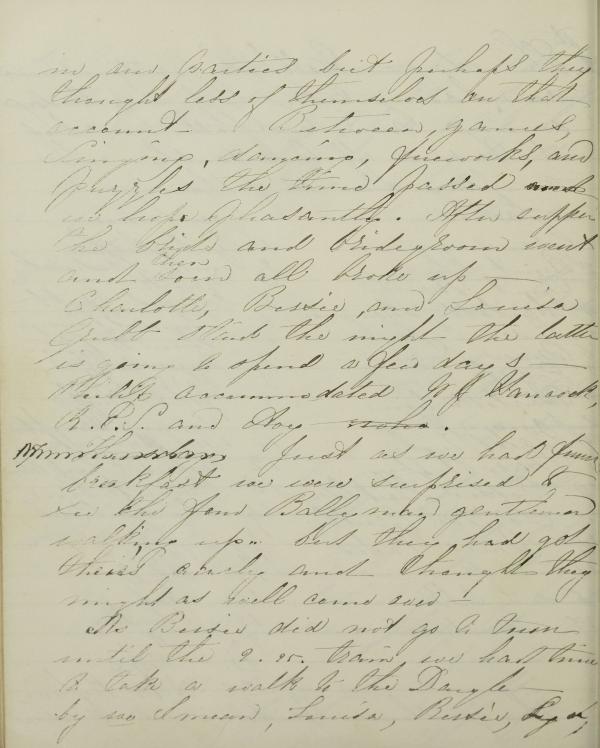 in our parties but perhaps they
thought less of themselves on that
account - Between, games,
singing, dancing, fireworks, and
puzzles the time passed
we hope pleasantly. After supper
the bride and bridegroom went
and then soon all broke up -
Charlotte, Bessie, and Louisa
staid the night the latter
is going to spend a few days -
accommodated W J Hancock,
R. P. S. and
Thursday Just as we had
breakfast we were surprised to
see the four Ballyman gentlemen
walking up - but they had got
theirs early and thought they
might as well come over -
As Bessie did not go to town
until the 9.25. train we had time
to take a walk to the Dargle -
by we I mean, Louisa, Bessie,